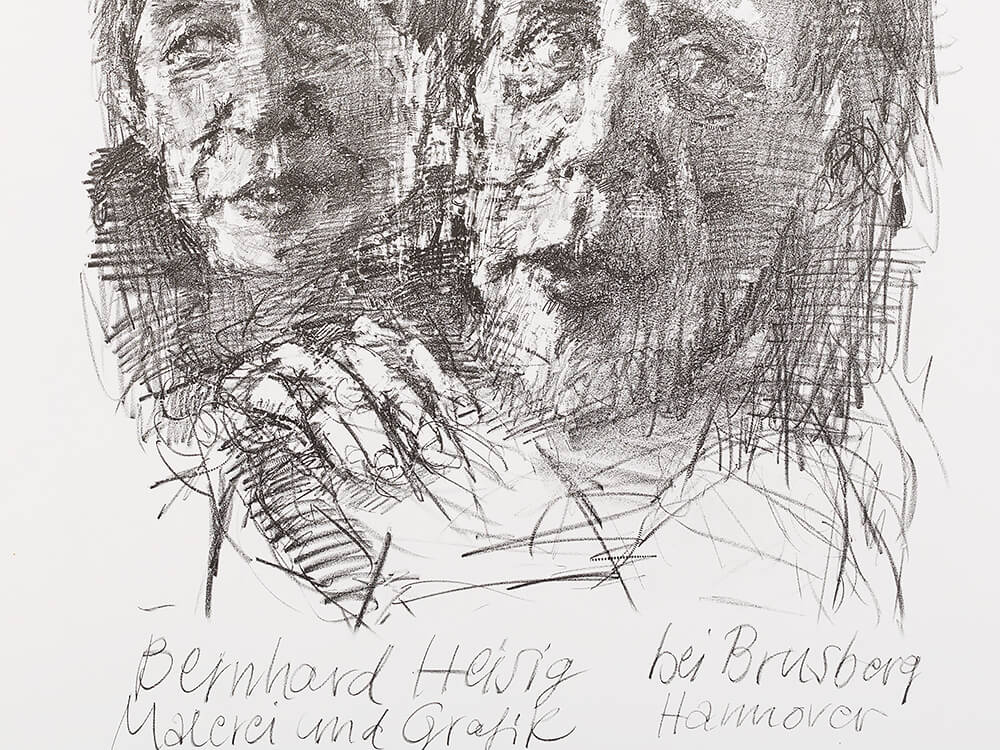 Bernhard Heisig bei Brusberg
Malerei und Grafik Hannover